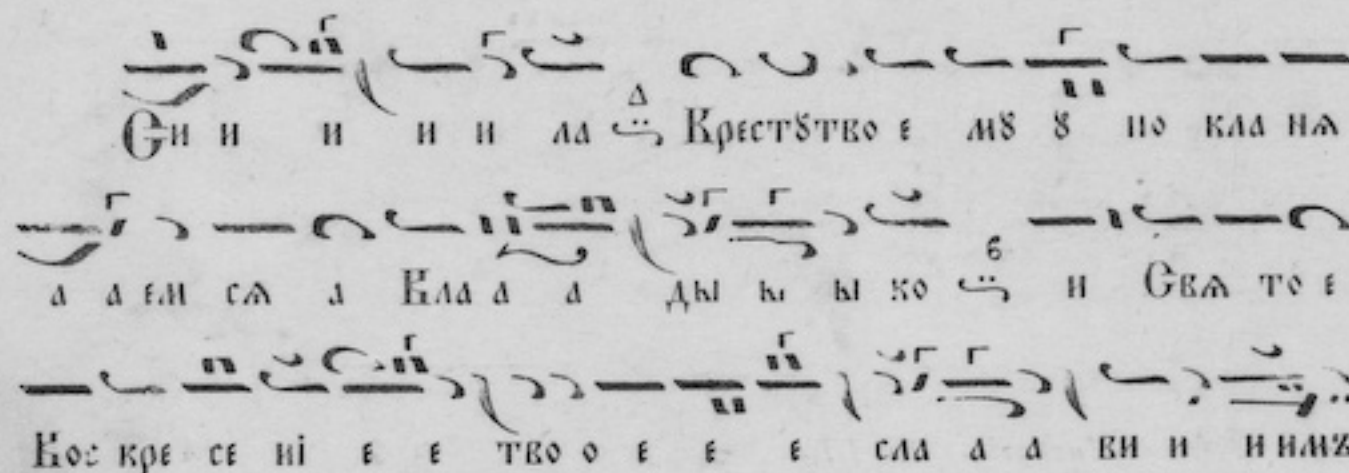 Си и и и и ла Крестꙋтвое мꙋ ꙋ по кла нѧ
а а ем сѧ а Вла а а ды ы ы ко и Свѧ то е
Вос кре се ні е е тво о е е е сла а а ви и и имъ